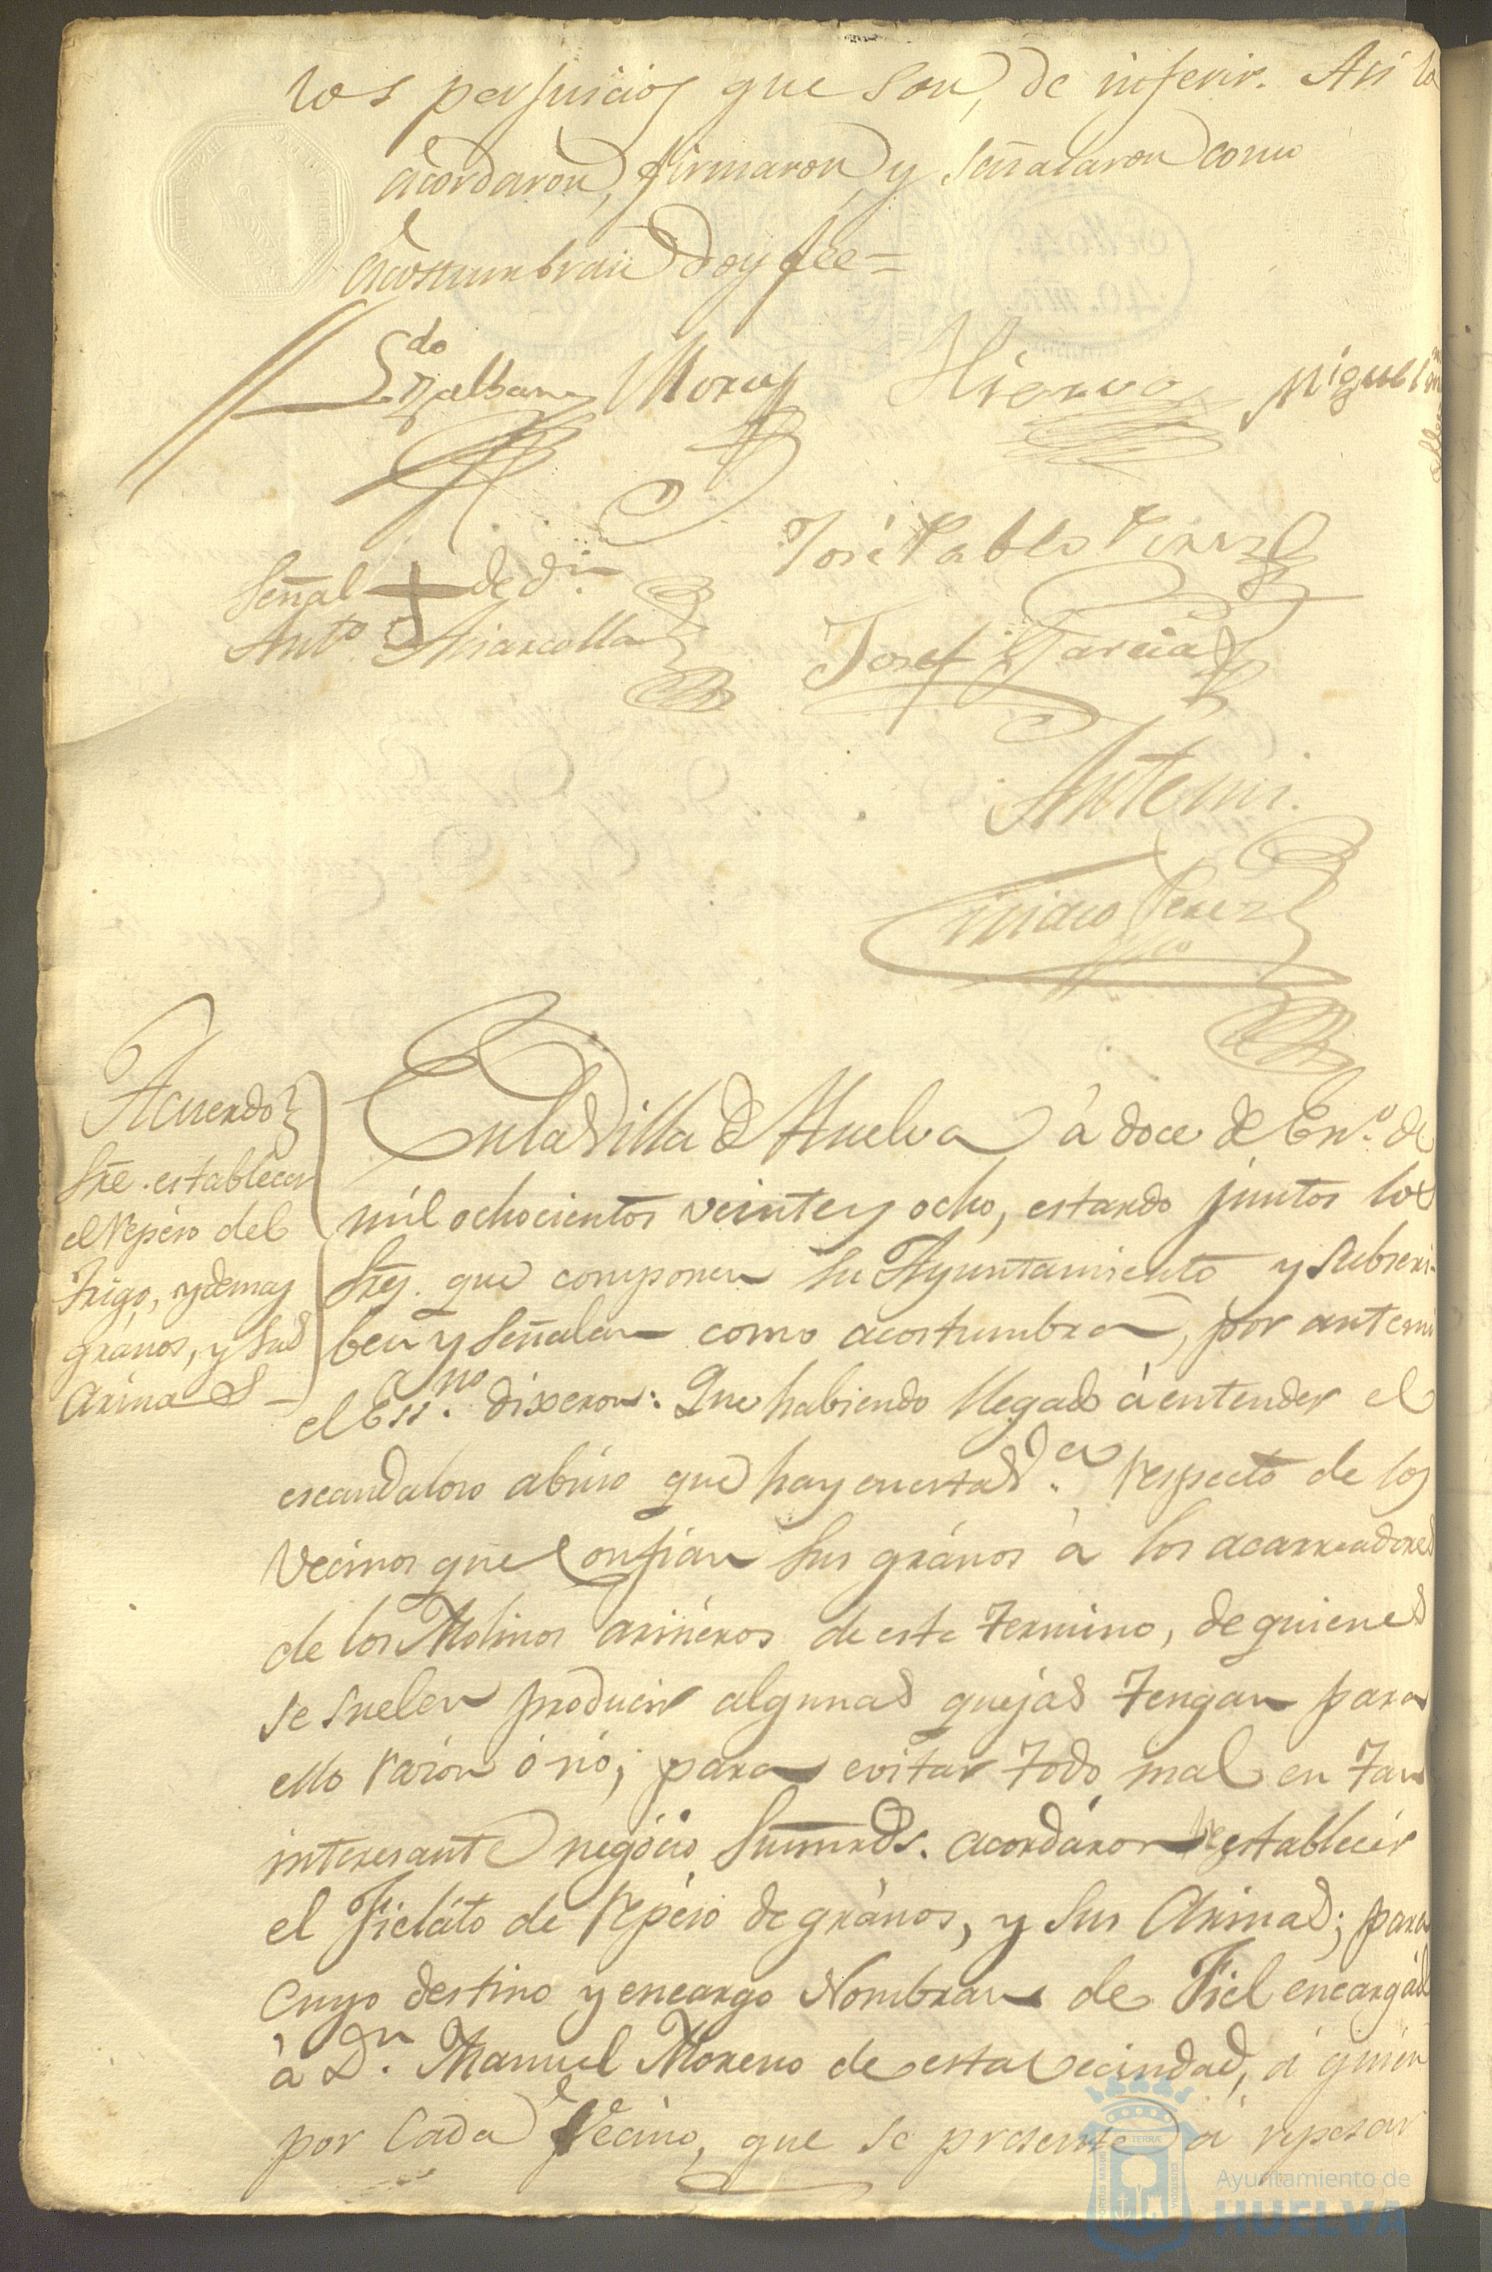 los perjuicios que son de inferir. Asi lo
acordaron, firmaron y señalaron como
acostumbran doy fee =
Ldo Zalban Mora Hierro Miguel
José Pablo Perez
Señal + de Dn
Anto Miarcolla
Josef Garcia
Antemi.
Ciriaco Perez
Acuerdo
Sre. establecer
el repéso del
Trigo, y demas
grános, y sus
Arinas
En la Villa de Huelva à doce de Eno. de
mil ochocientos veinte y ocho, estando juntos los
Sres. que componen su Ayuntamiento y subscri-
ben y señalan como acostumbran, por antemi
el Essno. dixeron: Que habiendo llegado à entender el
escandaloso abúso que hay en esta Va. respecto de los
Vecinos que confian sus grános à los acarreadores
de los Molinos arinéros de este termino, de quienes
se suelen producir algunas quejas tengan para
ello razón ó nó; para evitar todo mal en tan
interesante negócio Sus mrds. acordáron restablecér
el Fieláto de repéso de grános, y sus Arinas; para
cuyo destino y encargo Nombran de Fiel encargád
à Dn. Manuel Moreno de esta vecindad, à quien
por cada Vecino, que se presente à repesar
Ayuntamiento de
HUELVA